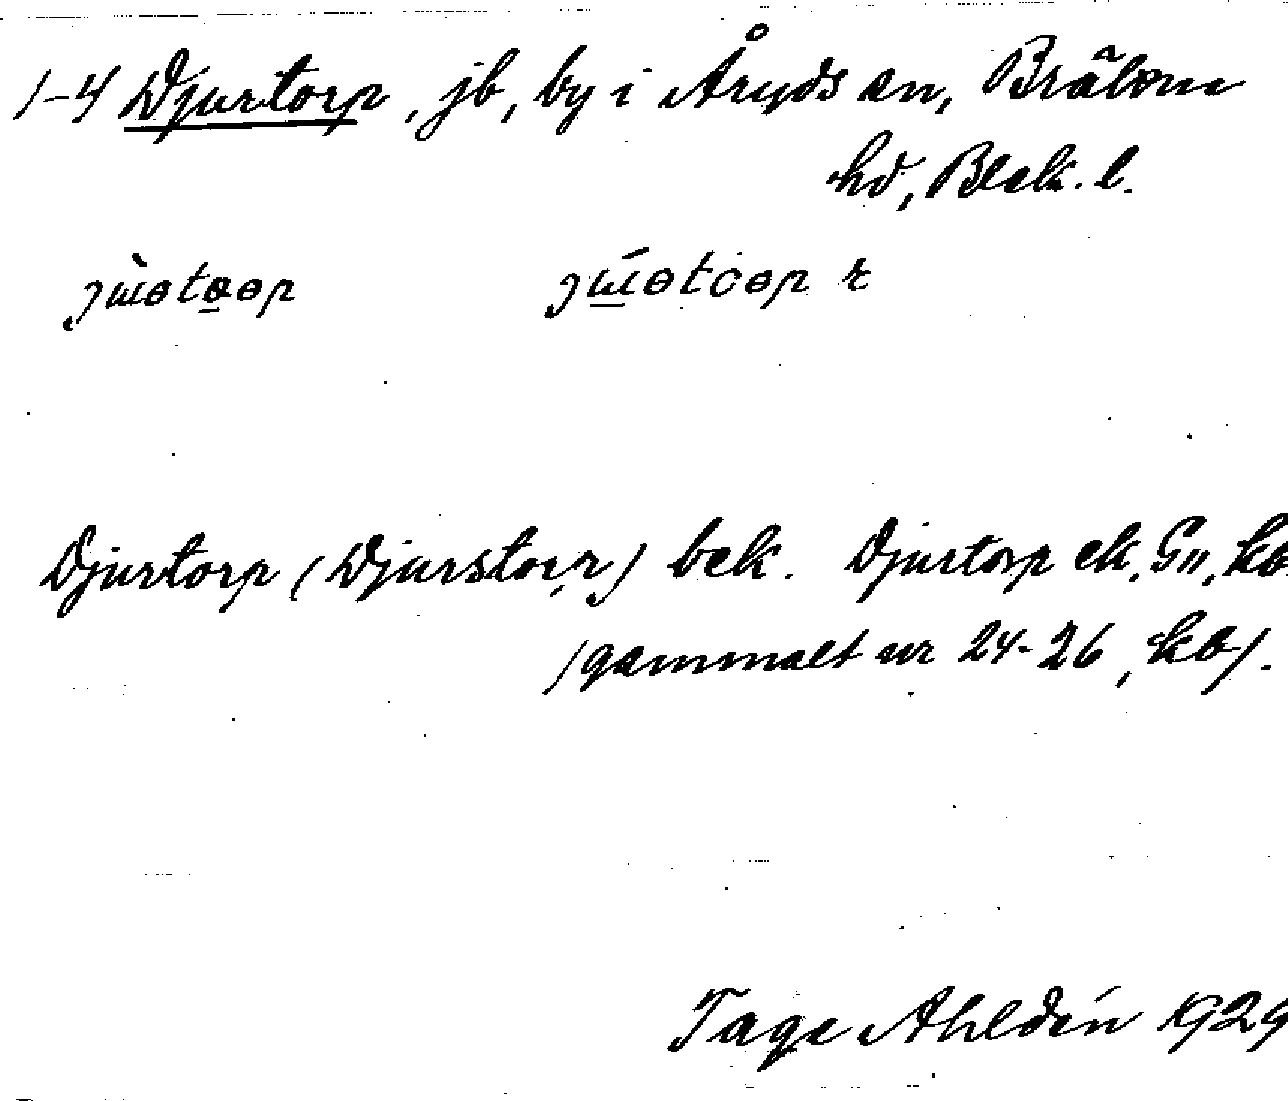 1-4 Djurtorp, jb, by i Åryds sn, Bräkne
hd, Blek. l.
Djurtorp (Djurstorp) bek. Djurtorp ek. G", kb
/gammalt ur 24-26, kb/.
Tage Ahldén 1929